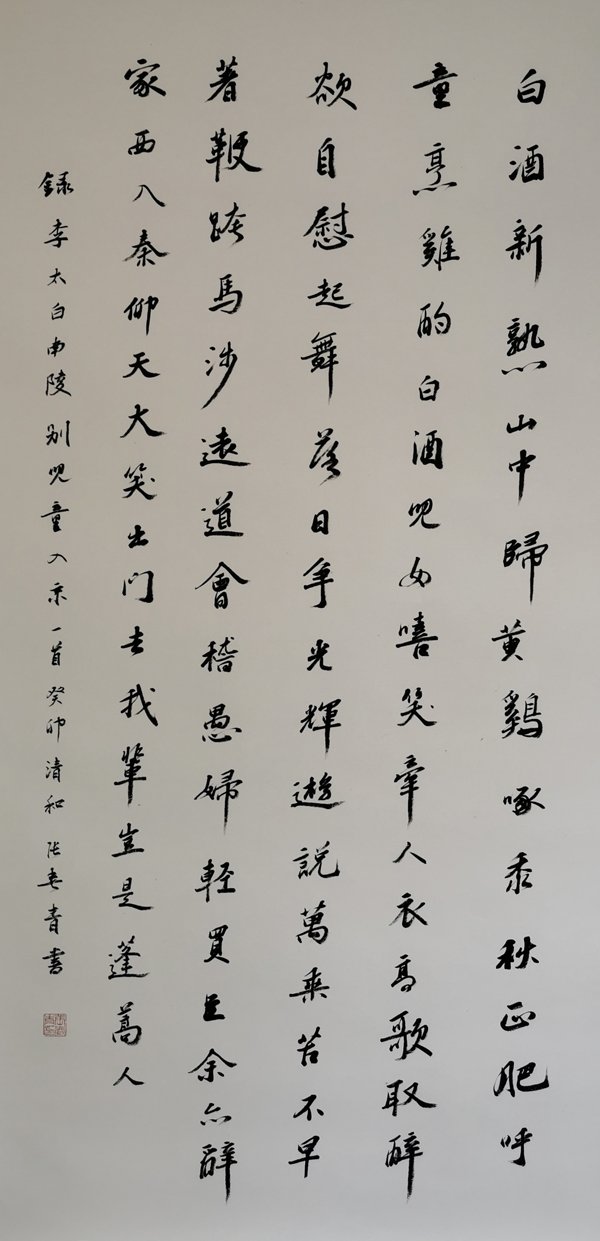 白酒新熟山中歸黃鷄啄黍秋正肥呼
童烹雞酌白酒兒女嘻笑牽人衣高歌取醉
欲自慰起舞落日爭光輝遊説萬乘苦不早
著鞭跨馬涉遠道會稽愚婦輕買臣余亦辭
家西入秦仰天大笑出門去我輩豈是蓬蒿人
錄李太白南陵别兒童入京一首癸卯清和張青書